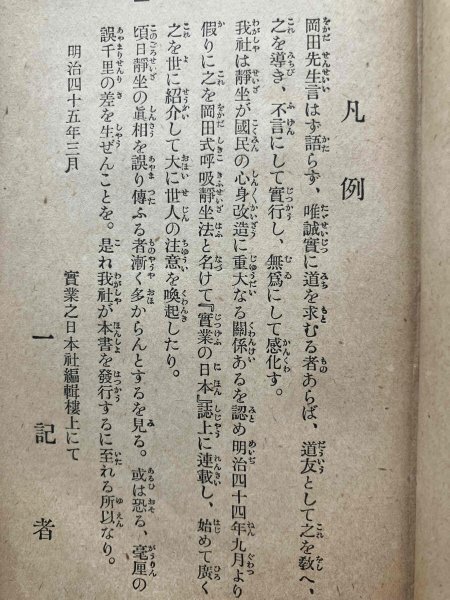 凡例
岡田先生言はず語らず、唯誠實に道を求むる者あらば、道友として之を敎へ、
之を導き、不言にして實行し、無爲にして感化す。
我社は靜坐が國民の心身改造に重大なる關係あるを認め明治四十四年九月より
假りに之を岡田式呼吸靜坐法と名けて『實業の日本』誌上に連載し、始めて廣く
之を世に紹介して大に世人の注意を喚起したり。
頃日靜坐の眞相を誤り傳ふる者漸く多からんとするを見る。或は恐る、毫厘の
誤千里の差を生ぜんことを。是れ我社が本書を發行するに至れる所以なり。
明治四十五年三月
實業之日本社編輯樓上にて
一記者